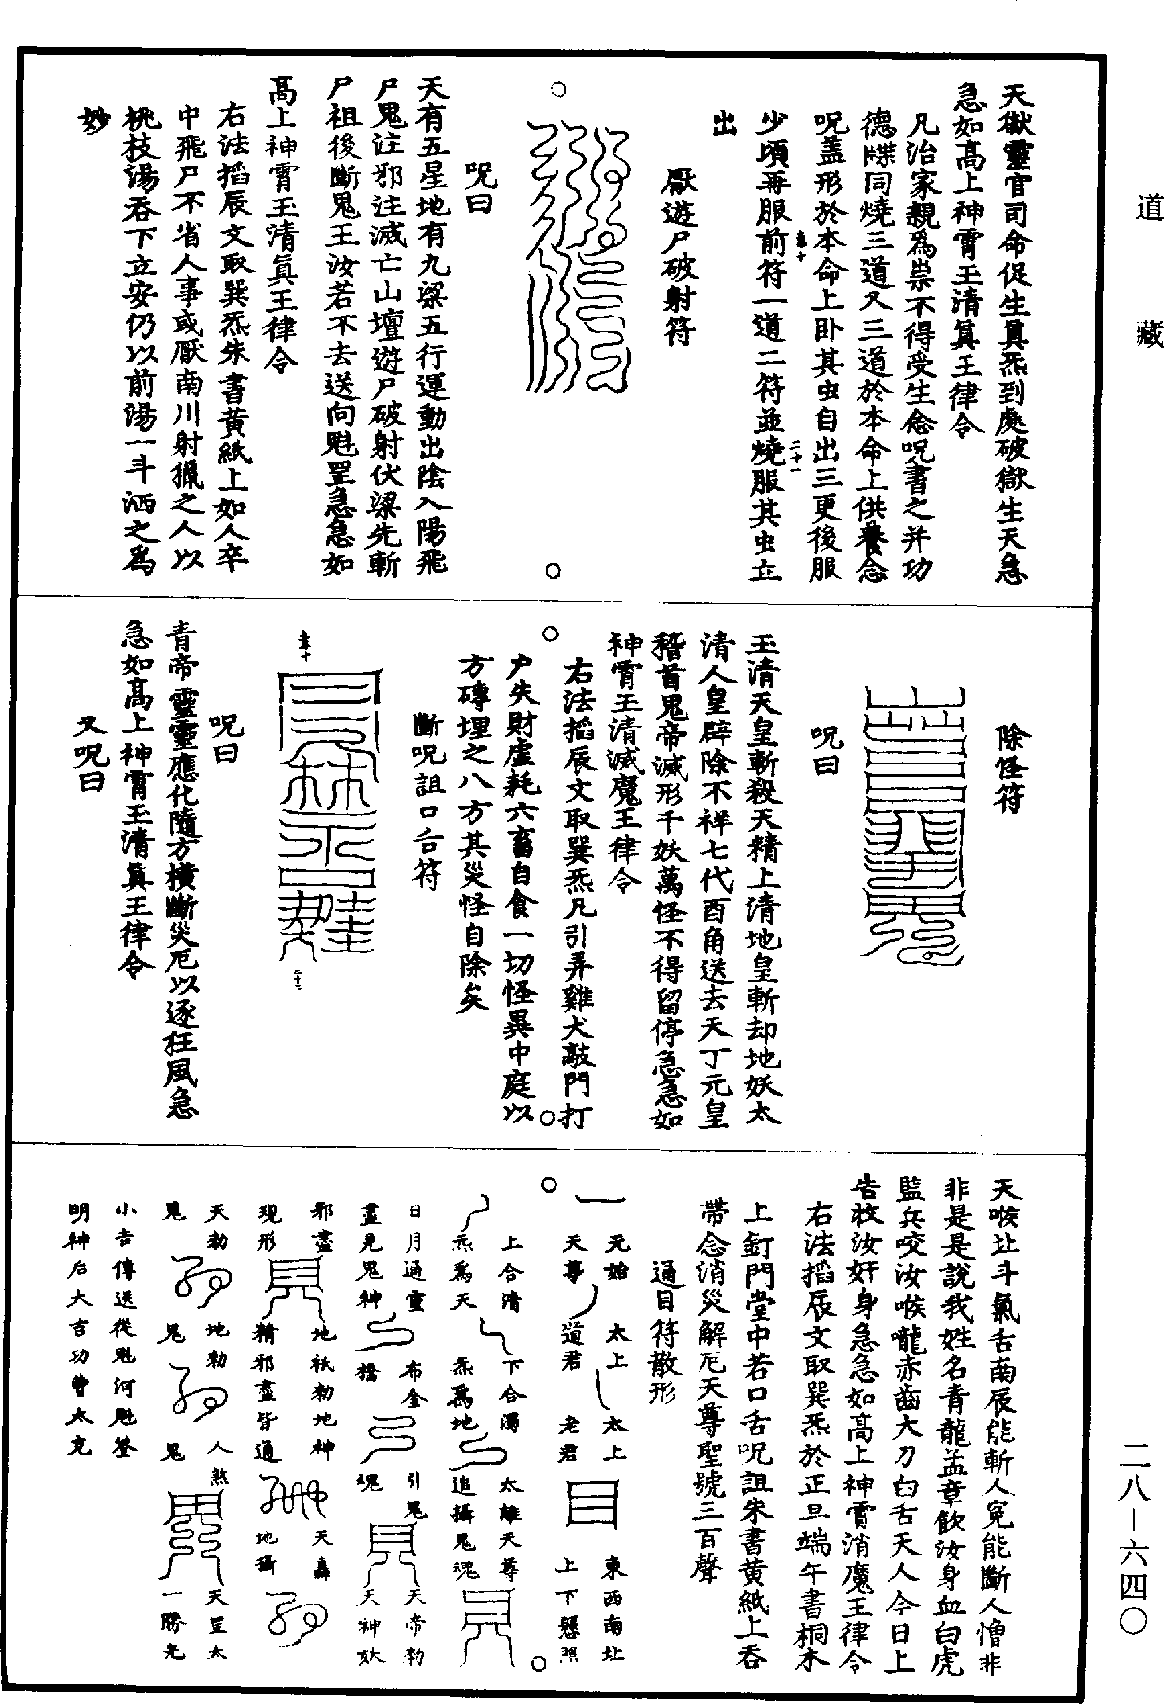 道藏
天獄靈官司命促生真炁到處破獄生天急
急如高上神霄玉清真王律令
凡治家親為祟不得受生念呪書之并功
德牒同燒三道又三道於本命上供養念
呪蓋形於本命上卧其虫自出三更後服
少頃再服前符一道二符並燒服其虫立
出
厭遊尸破射符
呪曰
天有五星地有九梁五行運動出陰入陽飛
尸鬼注邪注滅亡山壇遊尸破射伏梁先斬
尸祖後斷鬼王汝若不去送向魁罡急急如
高上神霄玉清真王律令
右法掐辰文取巽炁朱書黄紙上如人卒
中飛尸不省人事或厭南川射獵之人以
桃枝湯吞下立安仍以前湯一斗洒之為
妙
除怪符
呪曰
玉清天皇斬殺天精上清地皇斬却地妖太
清人皇辟除不祥七代酉角送去天丁元皇
稽首鬼帝滅形千妖萬怪不得留停急急如
神霄玉清滅魔王律令
右法掐辰文取巽炁凡引弄雞犬敲門打
户失財虛耗六畜自食一切怪異中庭以
方磚埋之八方其災怪自除矣
斷呪詛口舌符
呪曰
青帝靈靈應化隨方横斷災厄以逐狂風急
急如高上神霄玉清真王律令
又呪曰
天喉北斗氣舌南辰能斬人冤能斷人憎非
非是是說我姓名青龍孟章飲汝身血白虎
監兵咬汝喉嚨赤齒大刀白舌天人今日上
告枚汝奸身急急如高上神霄消魔王律令
右法掐辰文取巽炁於正旦端午書桐木
上釘門堂中若口舌呪詛朱書黄紙上吞
帶念消災解厄天尊聖號三百聲
通目符散形
元始 太上 太上 東西南北
天尊 道君 老君 上下懸照
上合清 下合濁 太離天尊
炁為天 炁為地 追攝鬼魂
日月通靈 布金 引鬼 天帝勑
盡見鬼神 橋 魂 天神妖
邪盡 地祇勑地神 天轟
現形 精邪盡皆通 地攝
天勑 地勑 人煞 天罡太
鬼 鬼 鬼 一勝光
小吉傳送從魁河魁登
明神后大吉功曹太充
二八—六四〇